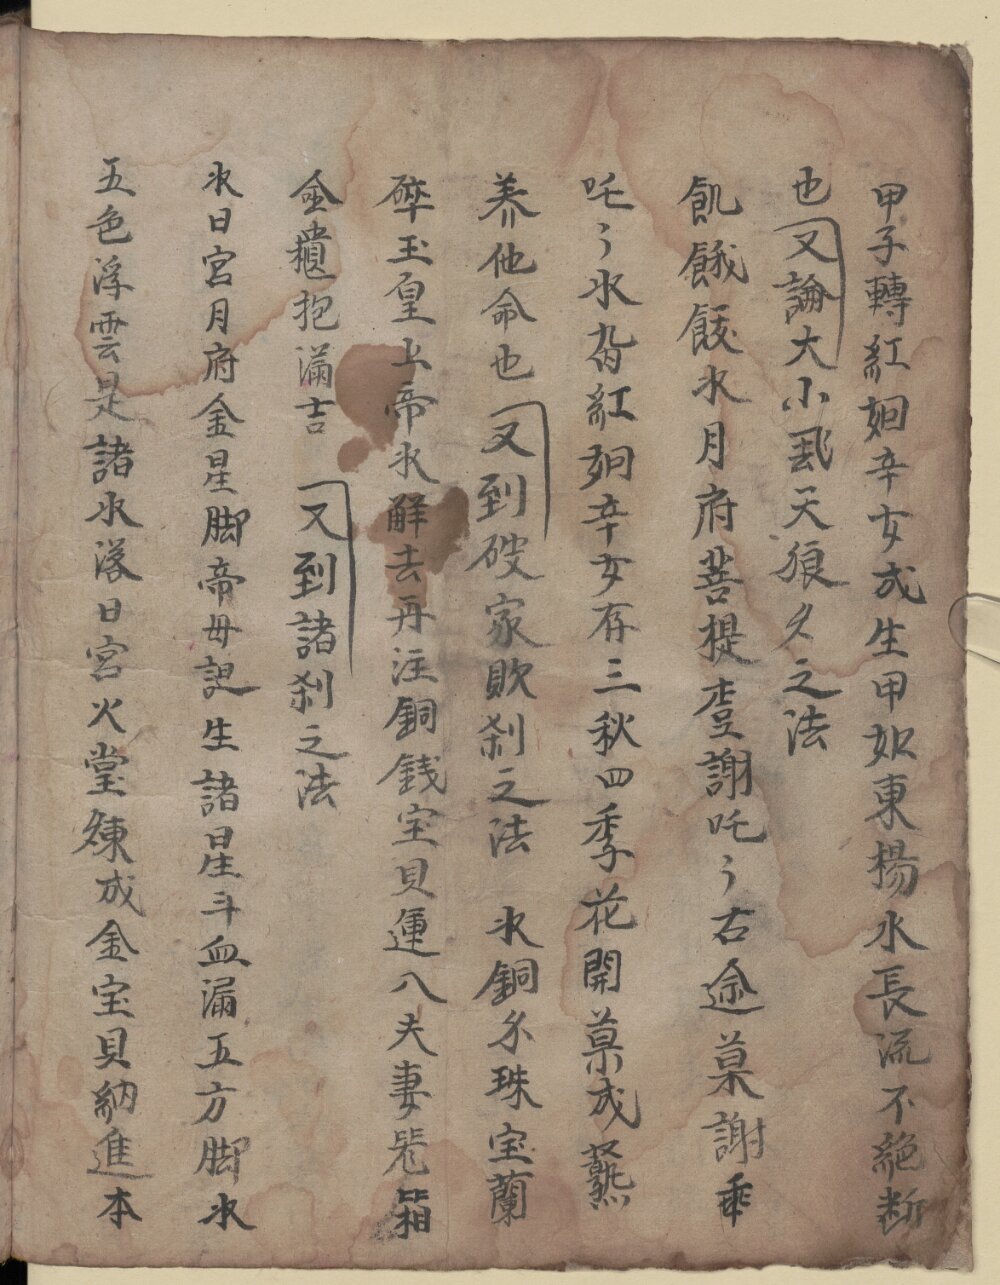 甲子轉紅姻辛女成生甲如東揚水長流不絕断
也又論大小亂天狼久之法
飢餓餒氷月府菩提李謝吒々右途菓謝乖
吒々氷育紅姻辛女存三秋四季花開菓成
养他命也又到破家敗刹之法氷銅尔珠宝蘭
碎玉皇上帝氷解去再注銅銭宝貝運入夫妻箱
金櫃抱滿吉又到諸刹之法
氷日宮月府金星脚帝毋記生諸星斗血漏五方脚氷
五色浮雲是諸氷落日宮火堂煉成金宝貝納進本